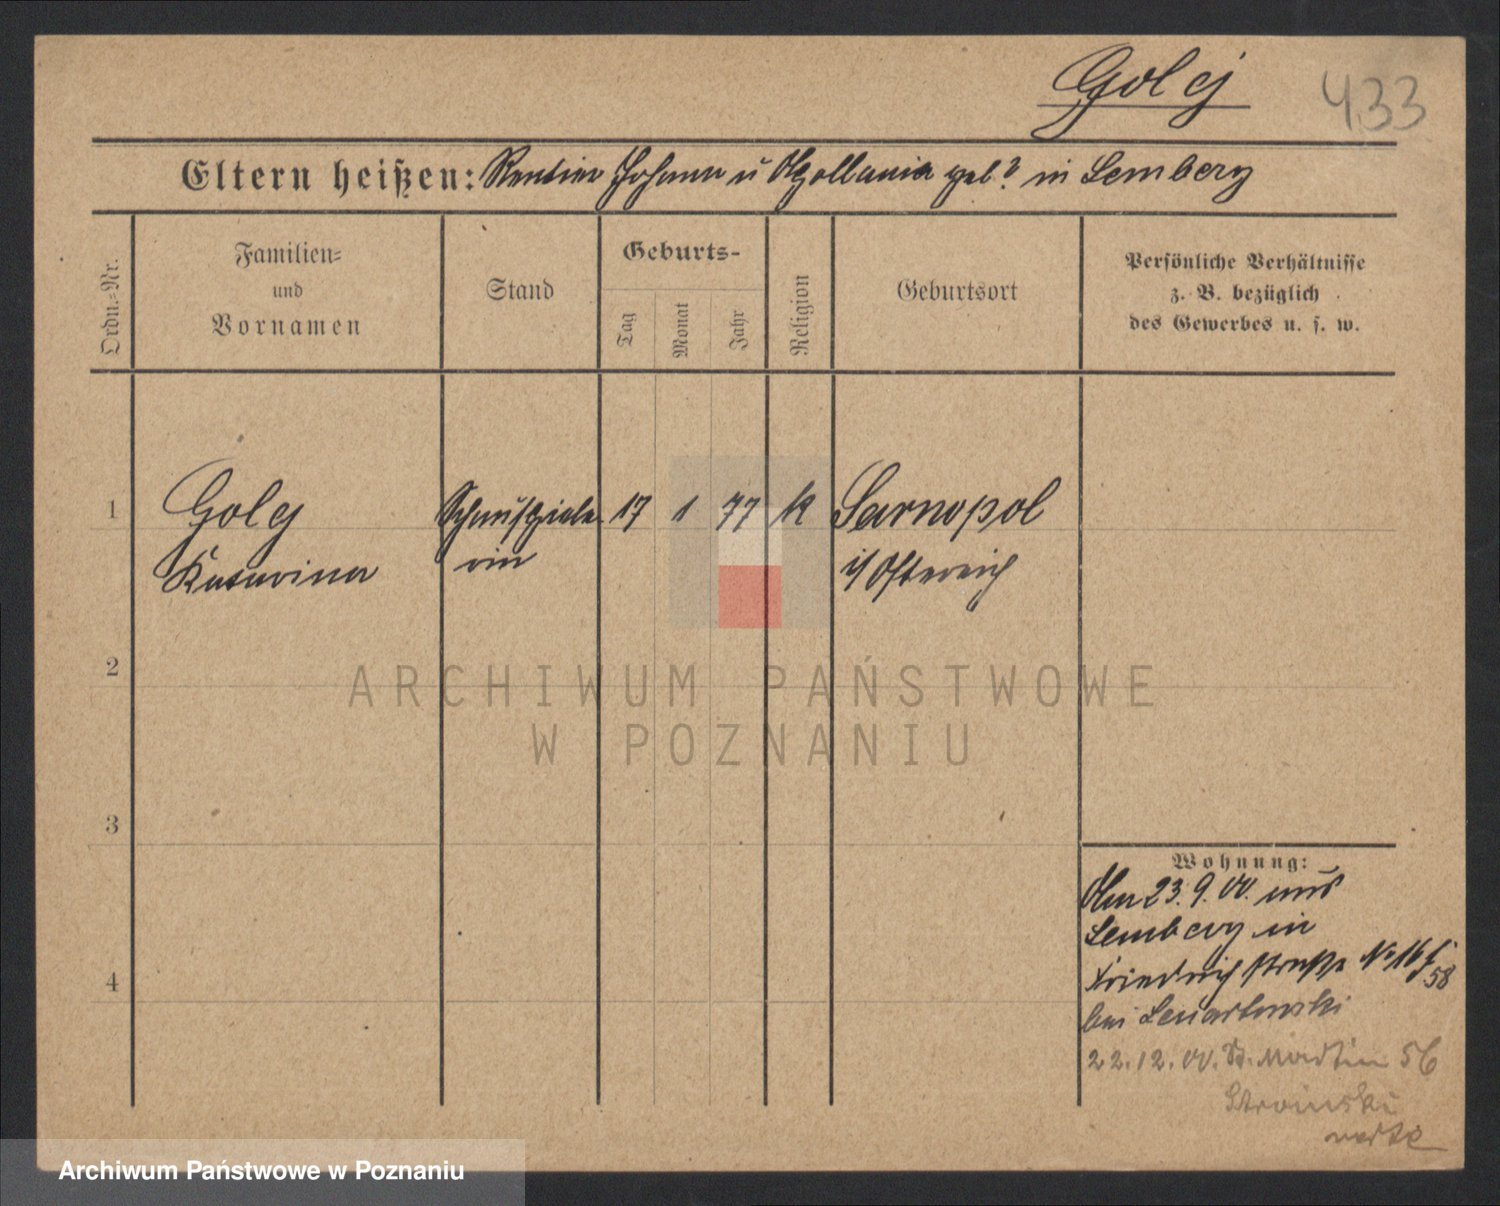 Golej
433
Eltern heißen: Rentier Johann u Apollonia geb? in Lemberg
Ordn.-Nr.
Familien-
und
Vornamen
Stand
Geburts-
Tag
Monat
Jahr
Religion
Geburtsort
Persönliche Verhältnisse
z. B. bezüglich
des Gewerbes u. s. w.
1
Golej
Katarina
Schauspiele
rin
17
1
77
k
Tarnopol
i/ Östereich
2
ARCHIWUM PAŃSTWOWE
W POZNANIU
3
4
Wohnung:
Am 23. 9. 00. aus
Lemberg in
Friedrichstraße No 16
58
bei Lenartowski
22. 12. 00. St. Martin 56
Stroinski
Archiwum Państwowe w Poznaniu